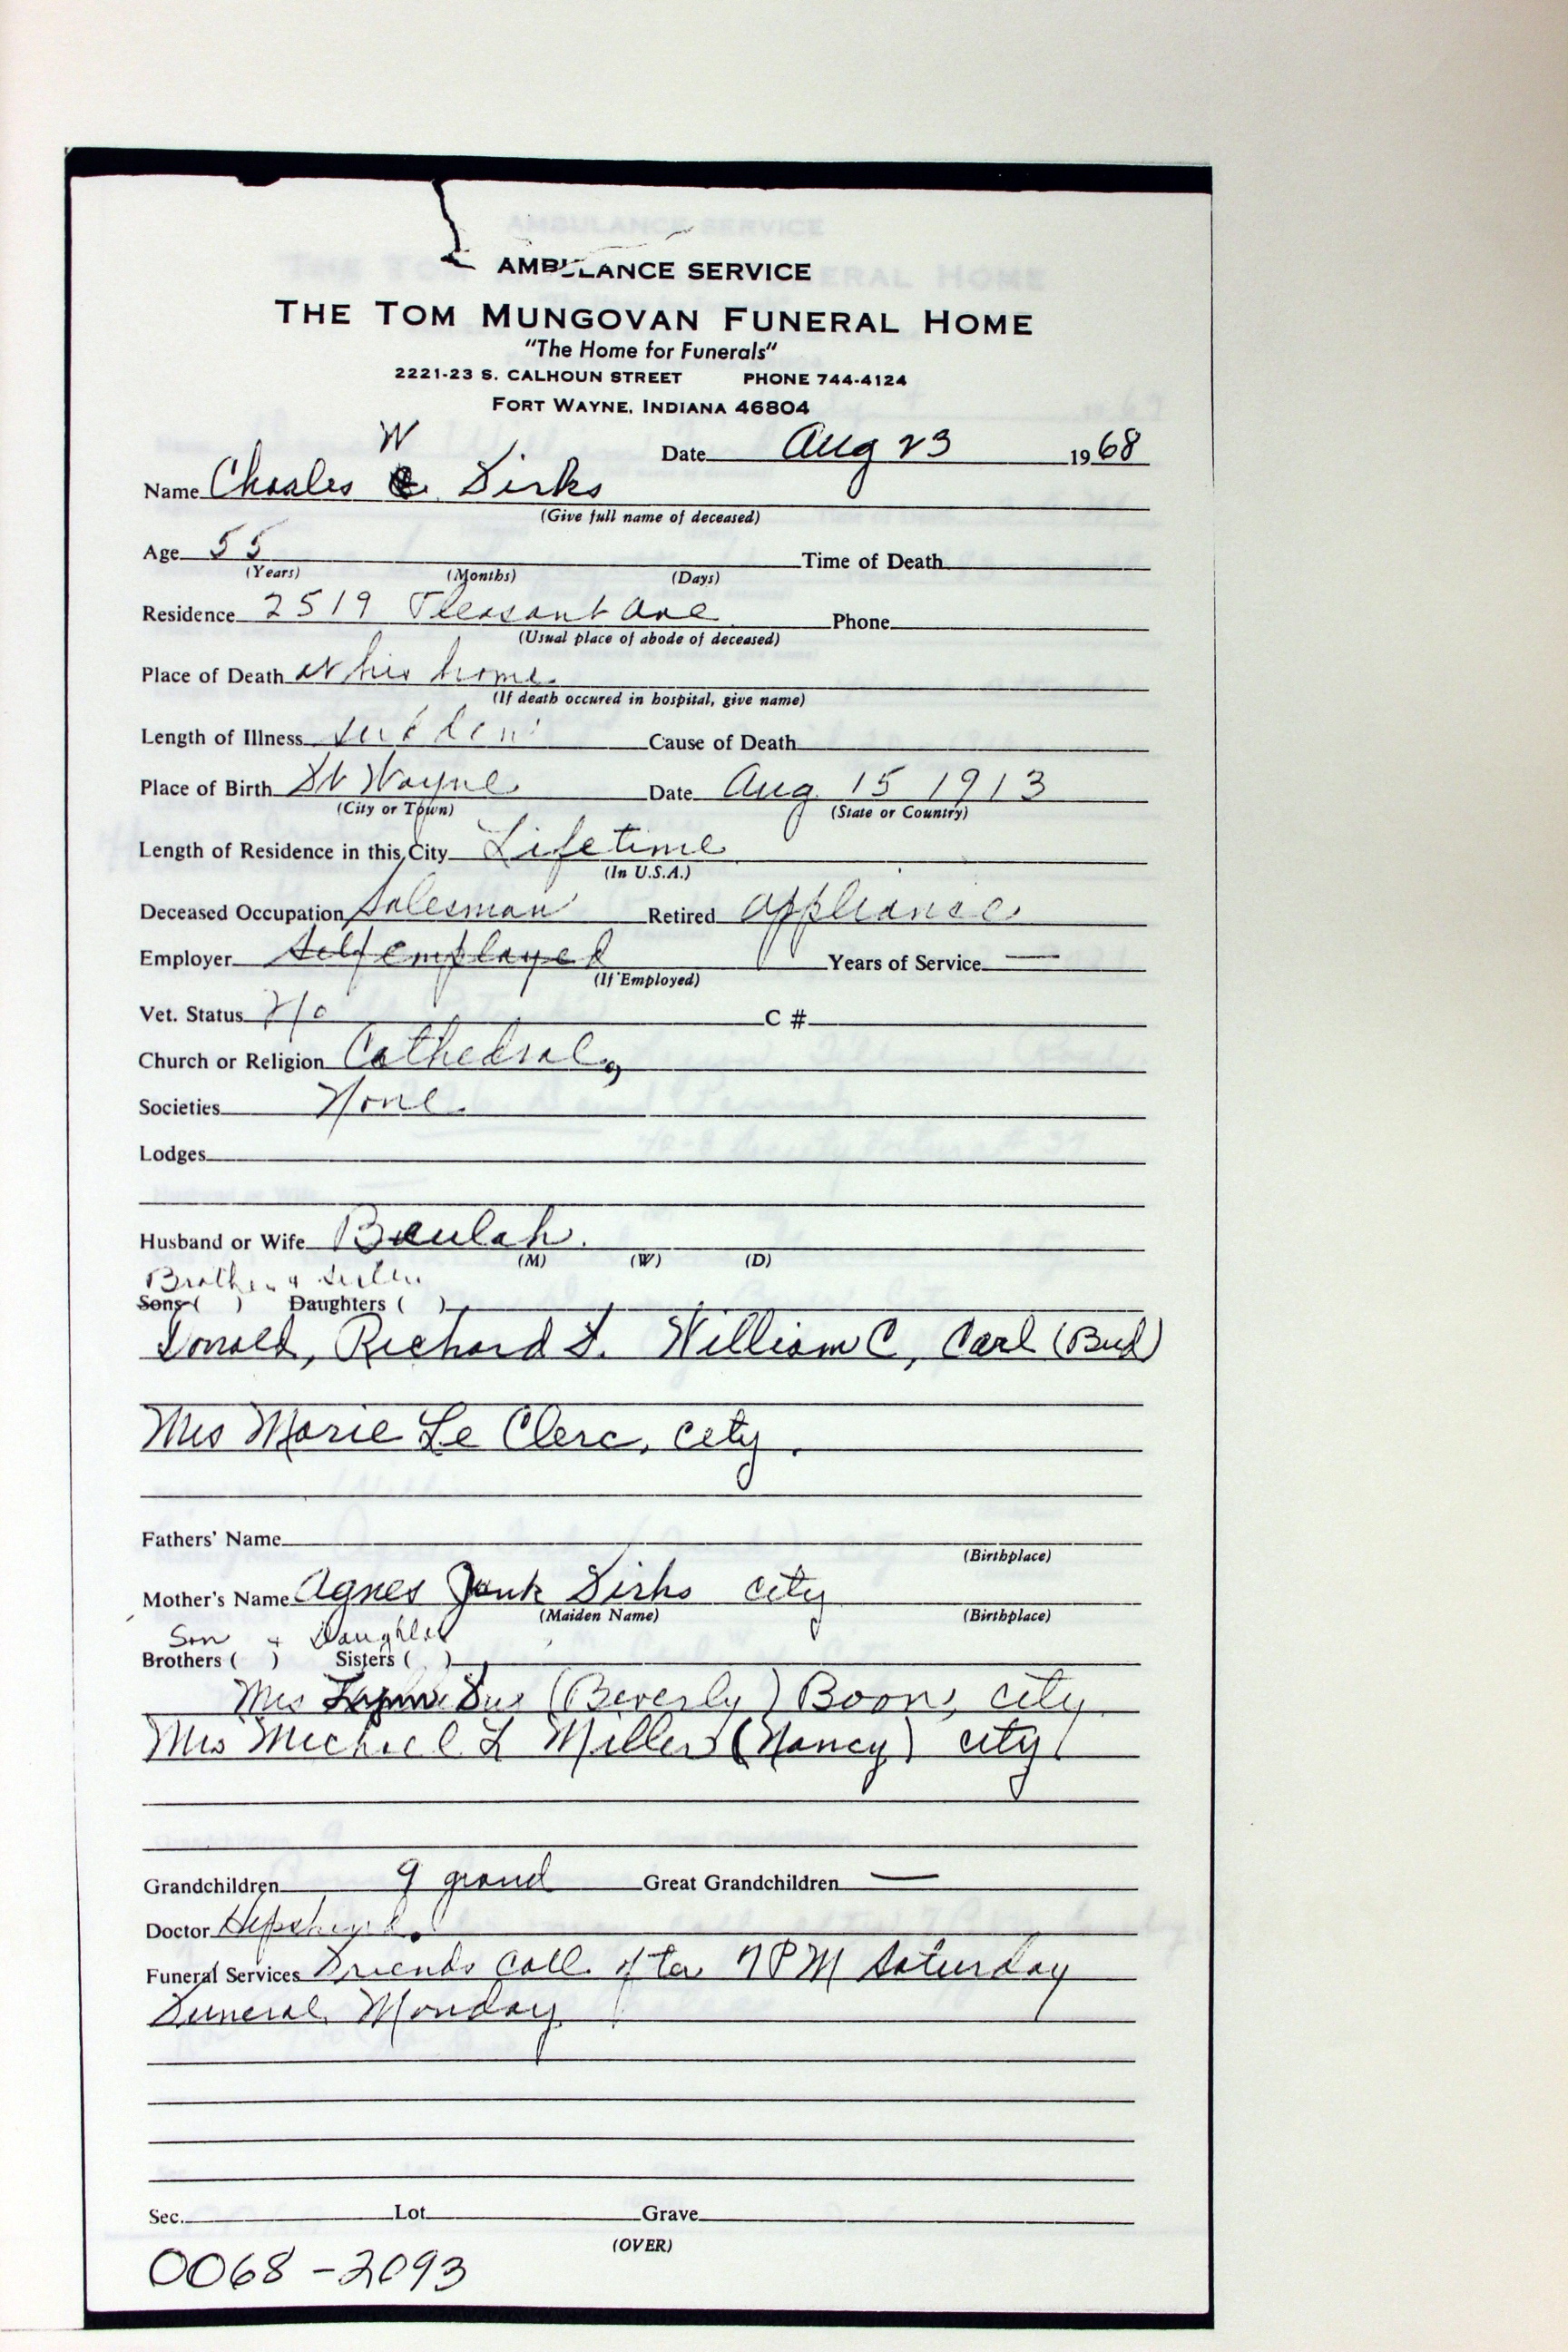 AMBULANCE SERVICE
THE TOM MUNGOVAN FUNERAL HOME
"The Home for Funerals"
2221-23 S. CALHOUN STREET PHONE 744-4124
FORT WAYNE, INDIANA 46804
Date Aug 23 1968
W
Name Charles Dirks
(Give full name of deceased)
Age 55 Time of Death
(Years) (Months) (Days)
Residence 2519 Pleasant Ave Phone
(Usual place of abode of deceased)
Place of Death at his home
(If death occured in hospital, give name)
Length of Illness sudden Cause of Death
Place of Birth Ft Wayne Date Aug. 15 1913
(City or Town) (State or Country)
Length of Residence in this City Lifetime
(In U.S.A.)
Deceased Occupation Salesman Retired appliance
Employer self employed Years of Service —
(If Employed)
Vet. Status No C #
Church or Religion Cathedral,
Societies None
Lodges
Husband or Wife Beulah.
(M) (W) (D)
Brothers & sister
Sons ( ) Daughters ( )
Donald, Richard F. William C, Carl (Bud)
Mrs Marie Le Clerc, city.
Fathers' Name
(Birthplace)
Mother's Name Agnes Junk Dirks city
(Maiden Name) (Birthplace)
Son & Daughter
Brothers ( ) Sisters ( )
Mrs (Beverly) Boon, city
Mrs Michael L Miller (Nancy) city
Grandchildren 9 grand Great Grandchildren —
Doctor
Funeral Services Friends call after 7 PM Saturday
Funeral Monday
Sec. Lot Grave
(OVER)
0068-2093